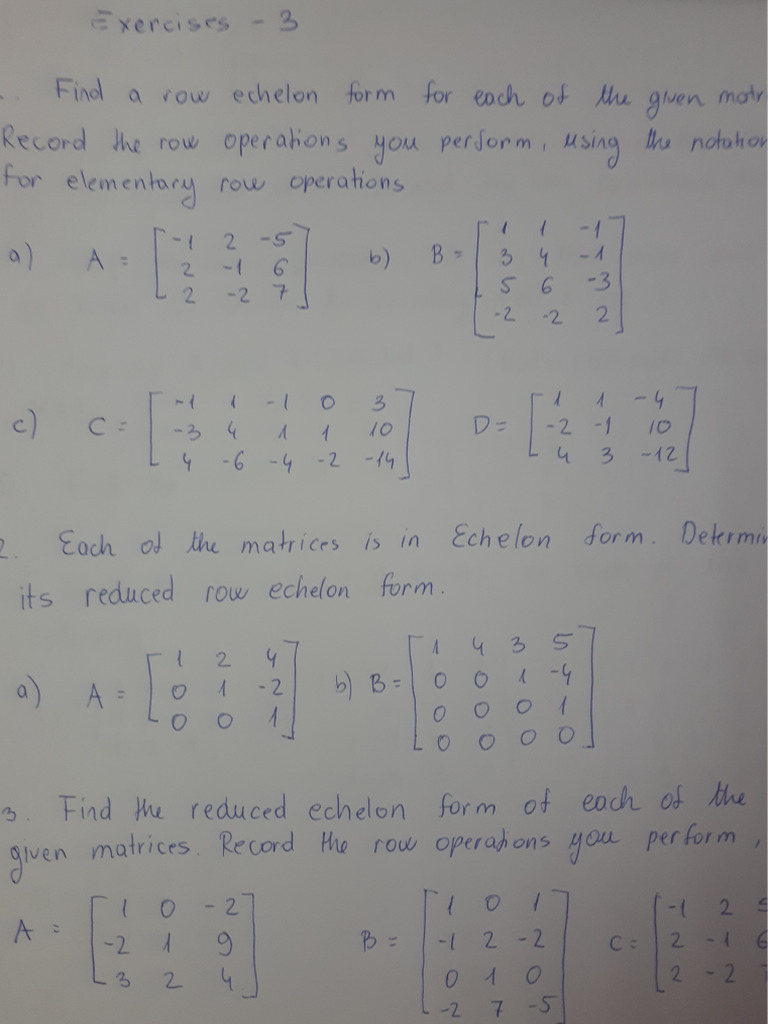 Exercises - 3
Find a row echelon form for each of the given matr
Record the row operations you perform, using the notation
for elementary row operations
a) A = [ -1 2 -5 b) B = [ 1 1 -1
2 -1 6 3 4 -1
2 -2 7 ] 5 6 -3
-2 -2 2 ]
c) C = [ -1 1 -1 0 3 D = [ 1 1 -4
-3 4 1 1 10 -2 -1 10
4 -6 -4 -2 -14 ] 4 3 -12 ]
2. Each of the matrices is in Echelon form. Determin
its reduced row echelon form.
a) A = [ 1 2 4 b) B = [ 1 4 3 5
0 1 -2 0 0 1 -4
0 0 1 ] 0 0 0 1
0 0 0 0 ]
3. Find the reduced echelon form of each of the
given matrices. Record the row operations you perform,
A = [ 1 0 -2 B = [ 1 0 1 C = [ -1 2
-2 1 9 -1 2 -2 2 -1
3 2 4 ] 0 1 0 2 -2
-2 7 -5 ]